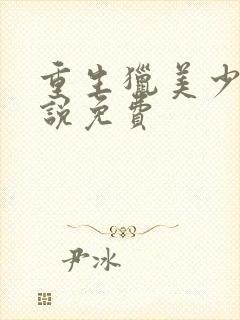 重生獵美少
說免費
尹冰